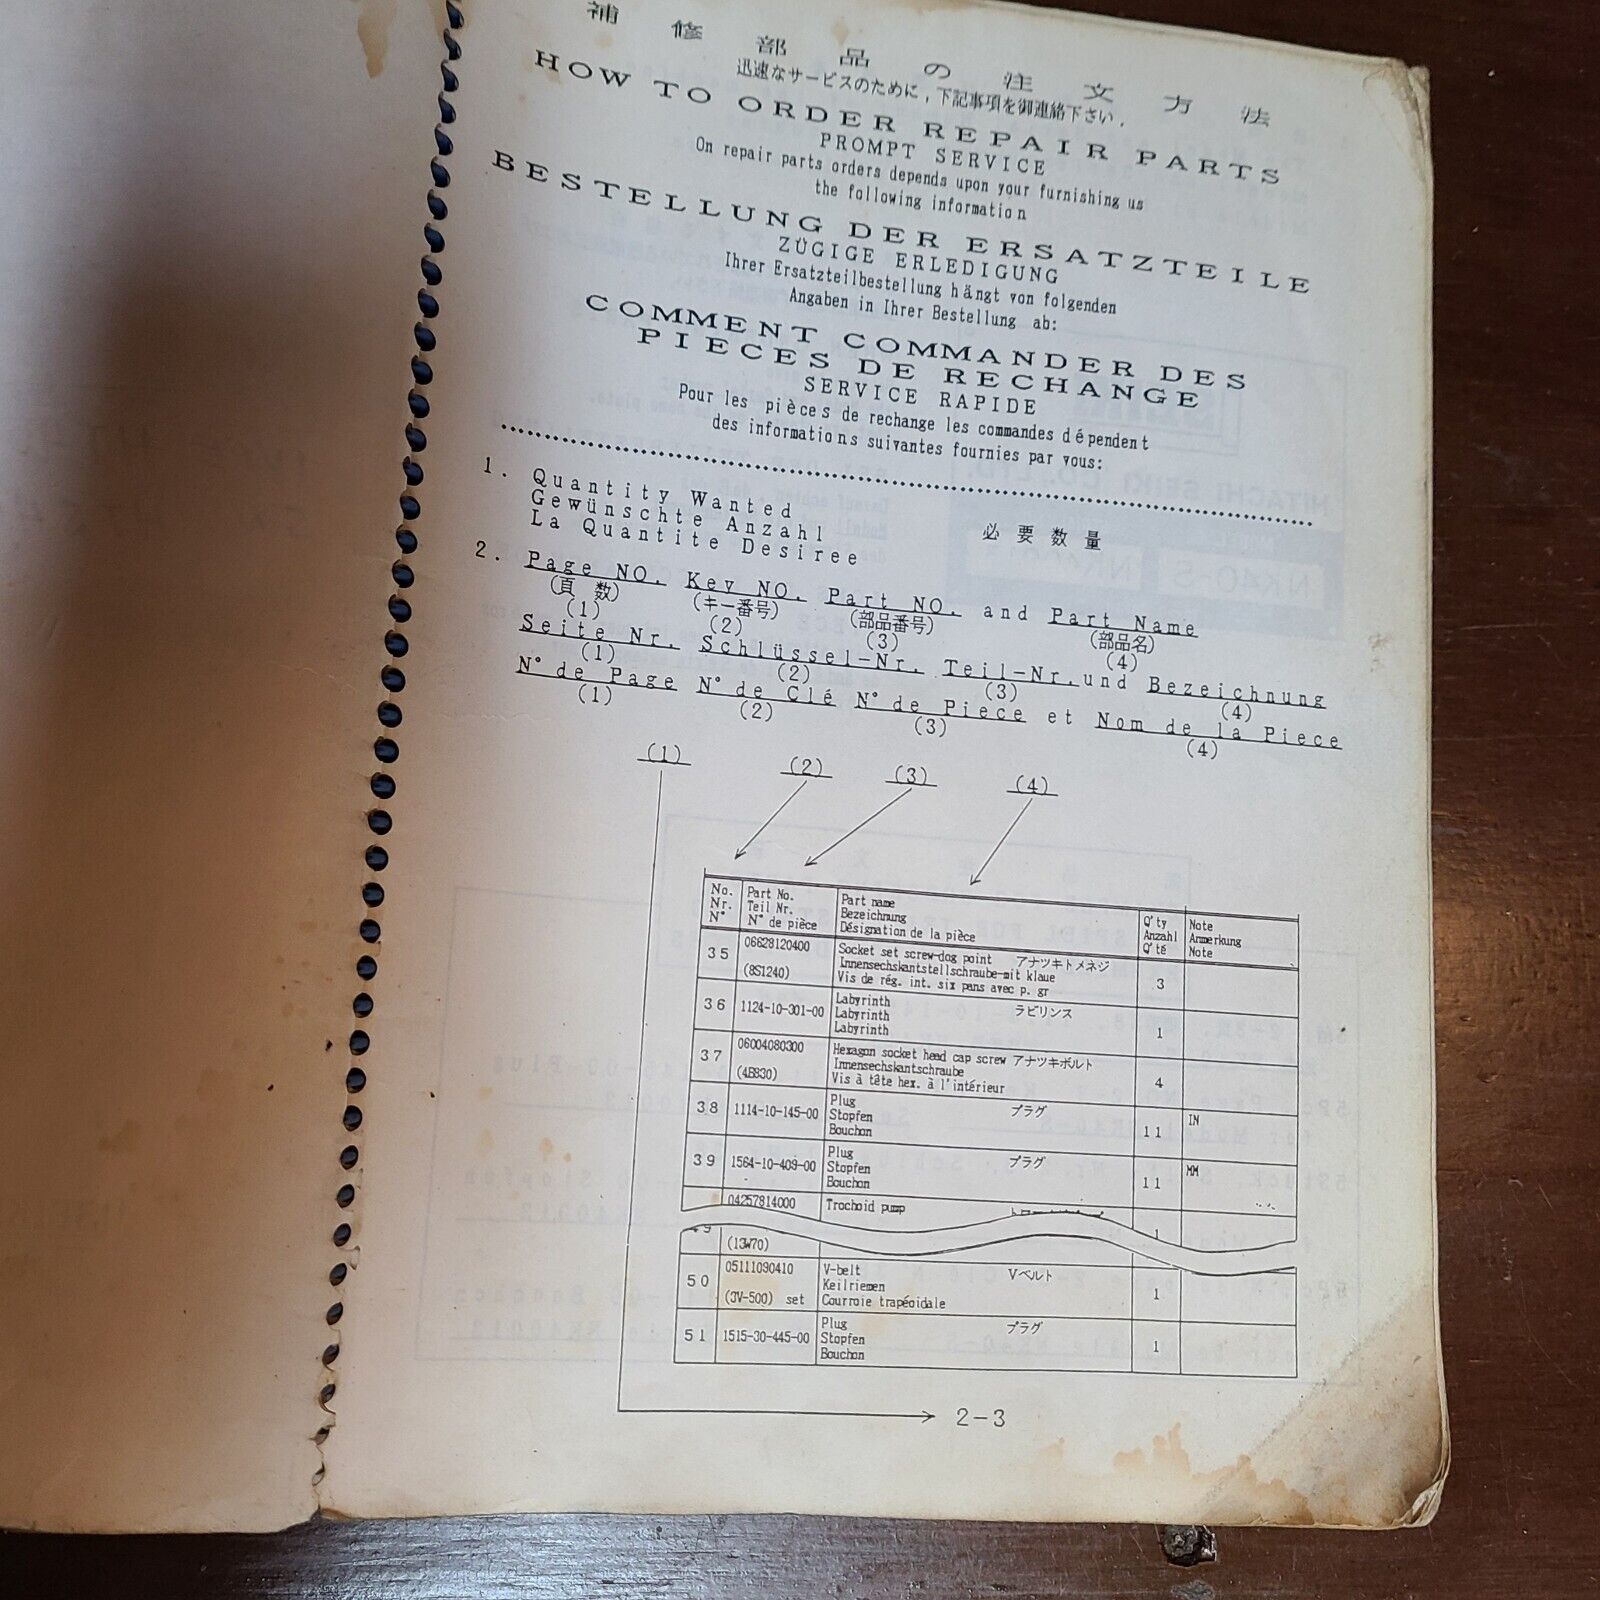 補修部品の注文方法
迅速なサービスのために,下記事項を御連絡下さい.
HOW TO ORDER REPAIR PARTS
PROMPT SERVICE
On repair parts orders depends upon your furnishing us
the following information
BESTELLUNG DER ERSATZTEILE
ZÜGIGE ERLEDIGUNG
Ihrer Ersatzteilbestellung hängt von folgenden
Angaben in Ihrer Bestellung ab:
COMMENT COMMANDER DES
PIECES DE RECHANGE
SERVICE RAPIDE
Pour les pièces de rechange les commandes dépendent
des informations suivantes fournies par vous:
1. Quantity Wanted
Gewünschte Anzahl 必要数量
La Quantite Desiree
2. Page NO. Key NO. Part NO. and Part Name
(頁 数) (キー番号) (部品番号) (部品名)
(1) (2) (3) (4)
Seite Nr. Schlüssel-Nr. Teil-Nr. und Bezeichnung
(1) (2) (3) (4)
N° de Page N° de Clé N° de Piece et Nom de la Piece
(1) (2) (3) (4)
(1) (2) (3) (4)
No. Part No. Part name Q'ty Note
Nr. Teil Nr. Bezeichnung Anzahl Anmerkung
N° N° de pièce Désignation de la pièce Q'té Note
35 06628120400 Socket set screw-dog point アナツキトメネジ 3
Innensechskantstellschraube-mit klaue
(8S1240) Vis de rég. int. six pans avec p. gr
36 1124-10-301-00 Labyrinth ラビリンス 1
Labyrinth
Labyrinth
37 06004080300 Hexagon socket head cap screw アナツキボルト 4
Innensechskantschraube
(4B830) Vis à tête hex. à l'intérieur
38 1114-10-145-00 Plug プラグ 11 IN
Stopfen
Bouchon
39 1564-10-409-00 Plug プラグ 11 MM
Stopfen
Bouchon
04257814000 Trochoid pump 1
49 (13W70)
50 05111090410 V-belt Vベルト 1
Keilriemen
(3V-500) set Courroie trapéoidale
51 1515-30-445-00 Plug プラグ 1
Stopfen
Bouchon
2-3